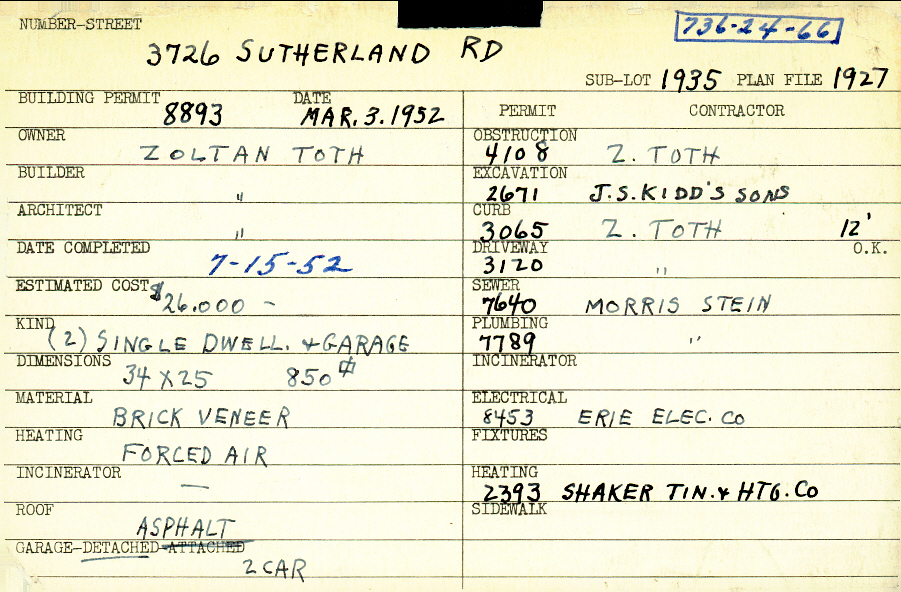 NUMBER-STREET
736-24-66
3726 SUTHERLAND RD
SUB-LOT 1935 PLAN FILE 1927
BUILDING PERMIT DATE
8893 MAR. 3. 1952
PERMIT CONTRACTOR
OWNER
ZOLTAN TOTH
OBSTRUCTION
4108 Z. TOTH
BUILDER
"
EXCAVATION
2671 J.S. KIDD'S SONS
ARCHITECT
"
CURB
3065 Z. TOTH 12'
DATE COMPLETED
7-15-52
DRIVEWAY O.K.
3120 "
ESTIMATED COST
$26.000 -
SEWER
7640 MORRIS STEIN
KIND
(2) SINGLE DWELL. & GARAGE
PLUMBING
7789 "
DIMENSIONS
34 X 25 850 ⌗
INCINERATOR
MATERIAL
BRICK VENEER
ELECTRICAL
8453 ERIE ELEC. CO
HEATING
FORCED AIR
FIXTURES
INCINERATOR
—
HEATING
2393 SHAKER TIN. & HTG. CO
ROOF
ASPHALT
SIDEWALK
GARAGE-DETACHED-ATTACHED
2 CAR